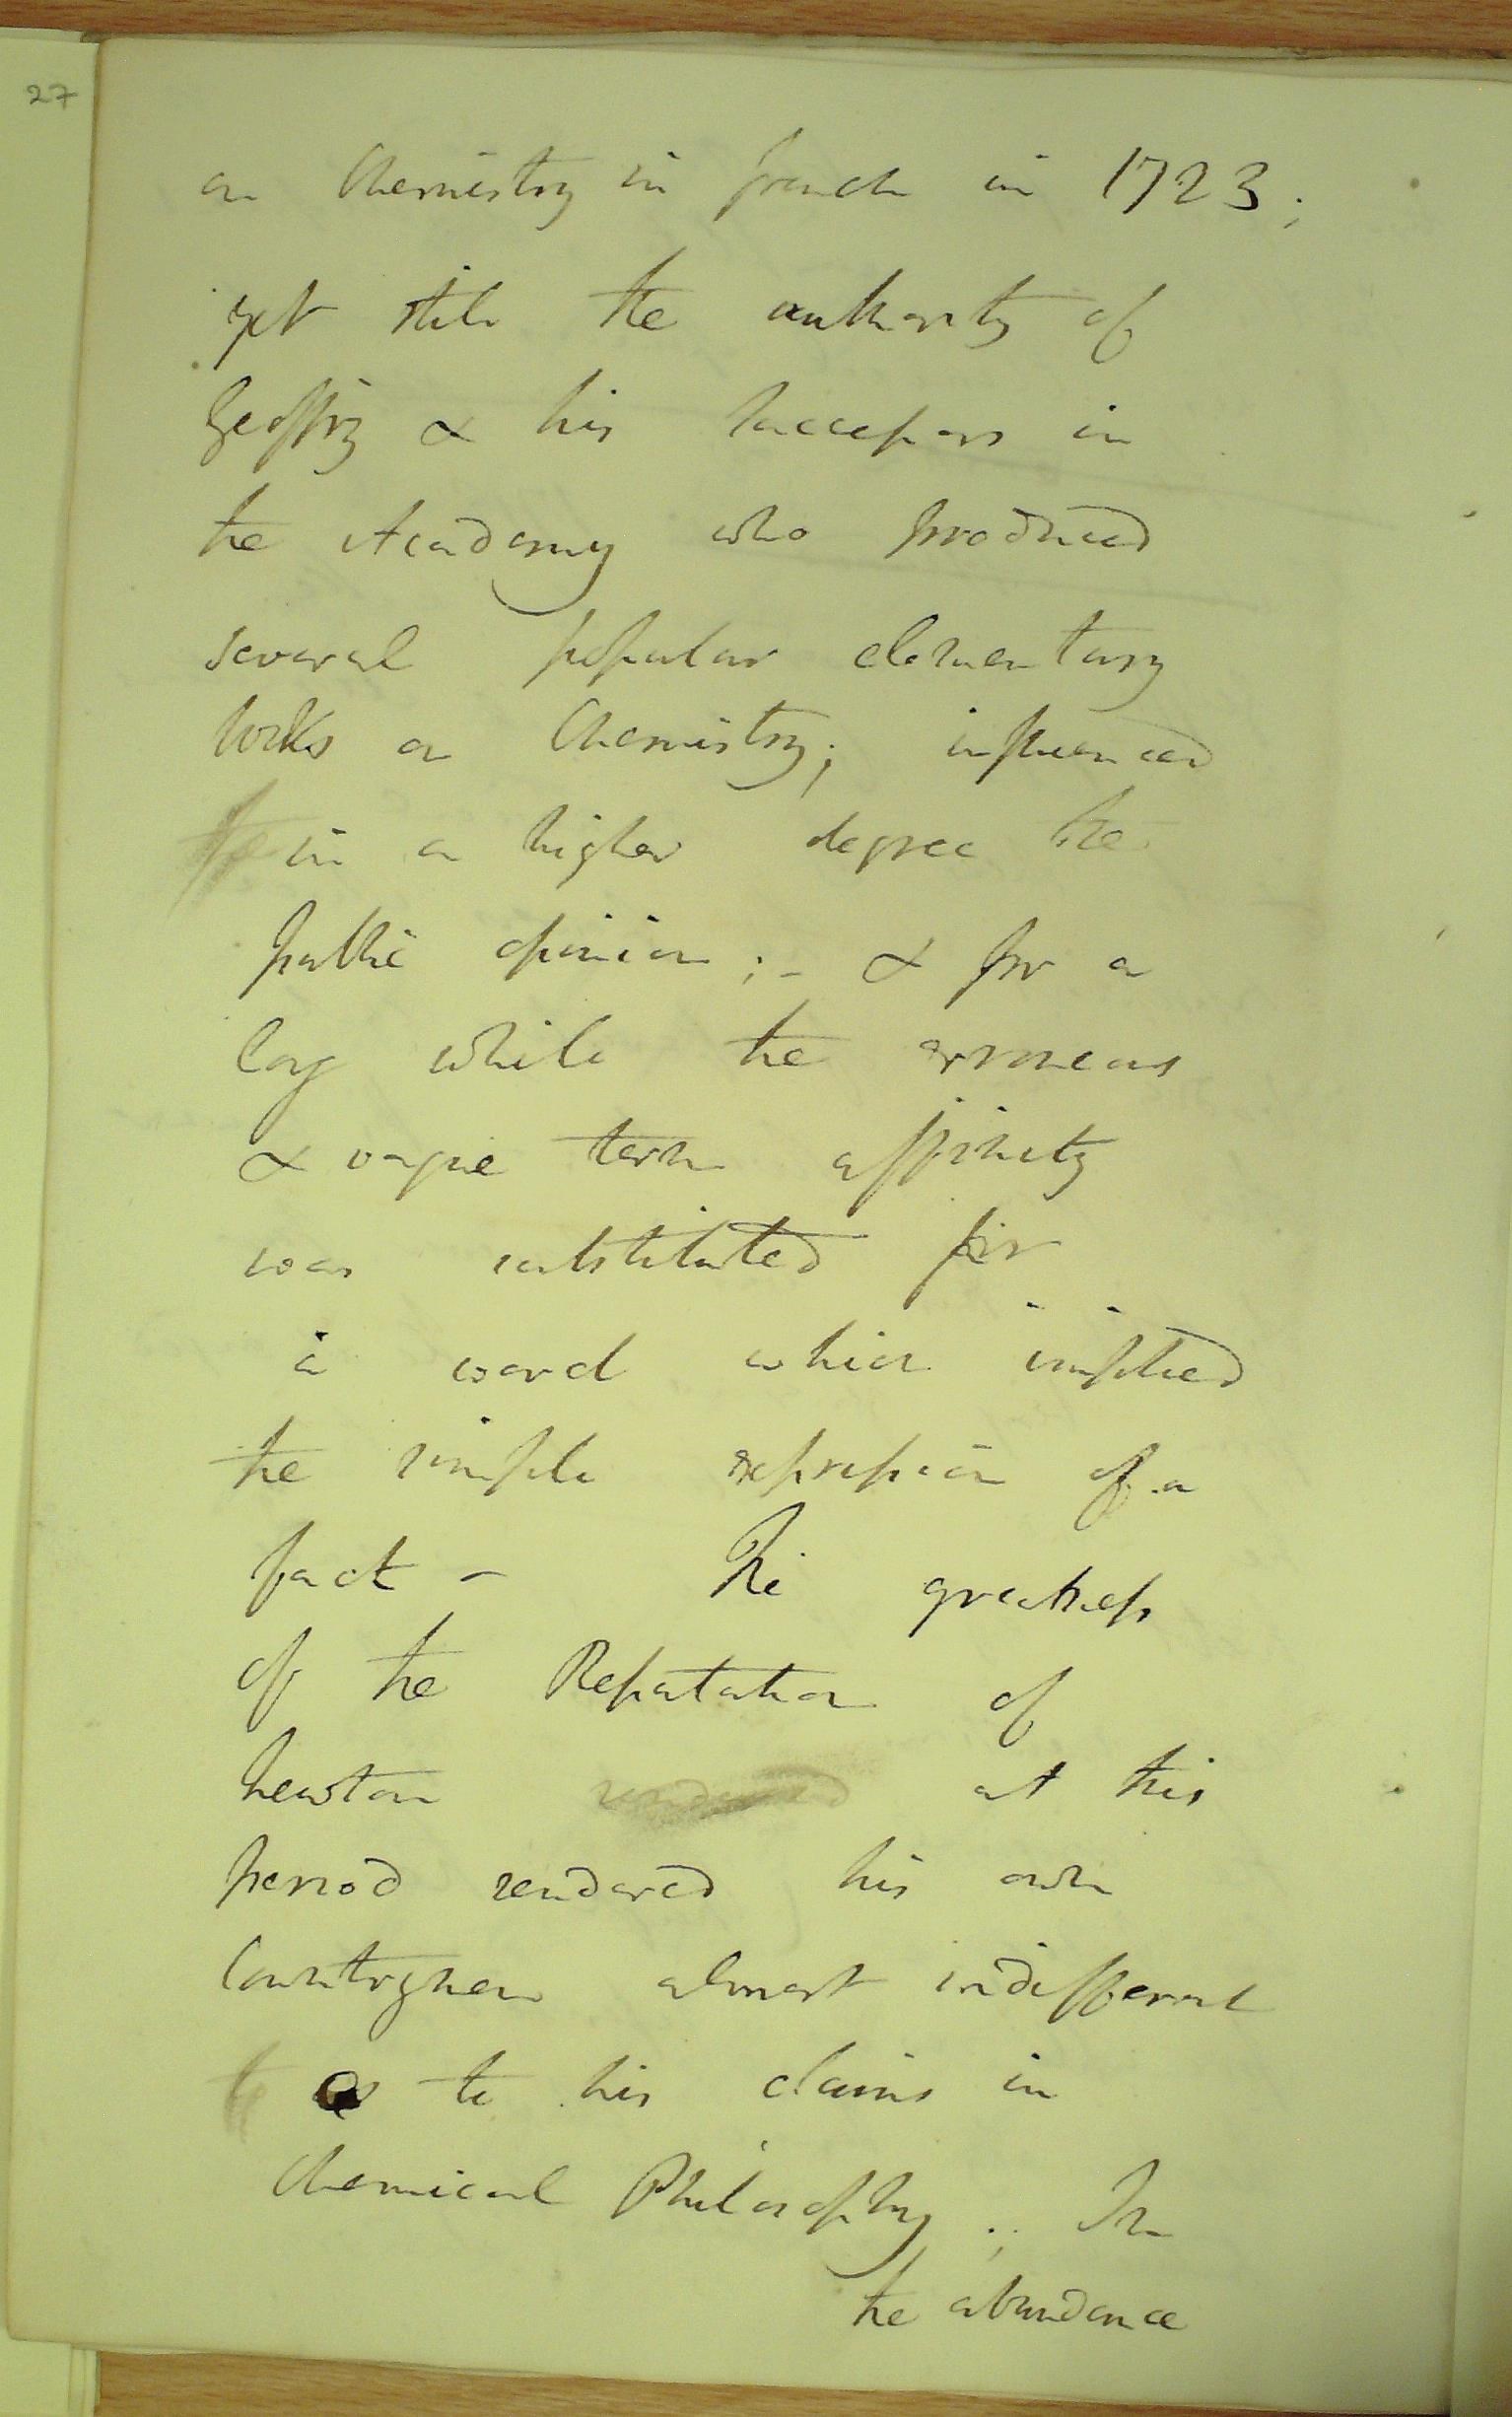 27
on Chemistry in french in 1723;
yet still the authority of
Geoffry & his Successors in
the Academy who produced
several popular elementary
books on Chemistry; influenced
in a higher degree the
public opinion; - & for a
long while the erroneous
& vague term affinity
was substituted for
a word which implied
the simple expression of a
fact - The greatness
of the Reputation of
Newton rendered at this
period rendered his own
Countrymen almost indifferent
as to his claims in
Chemical Philosophy.; In
the abundance